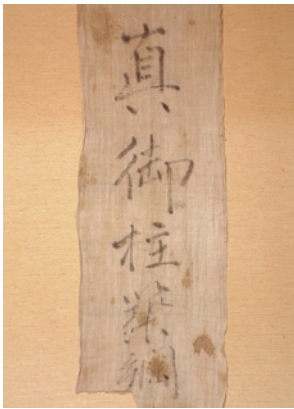 真御柱築綱